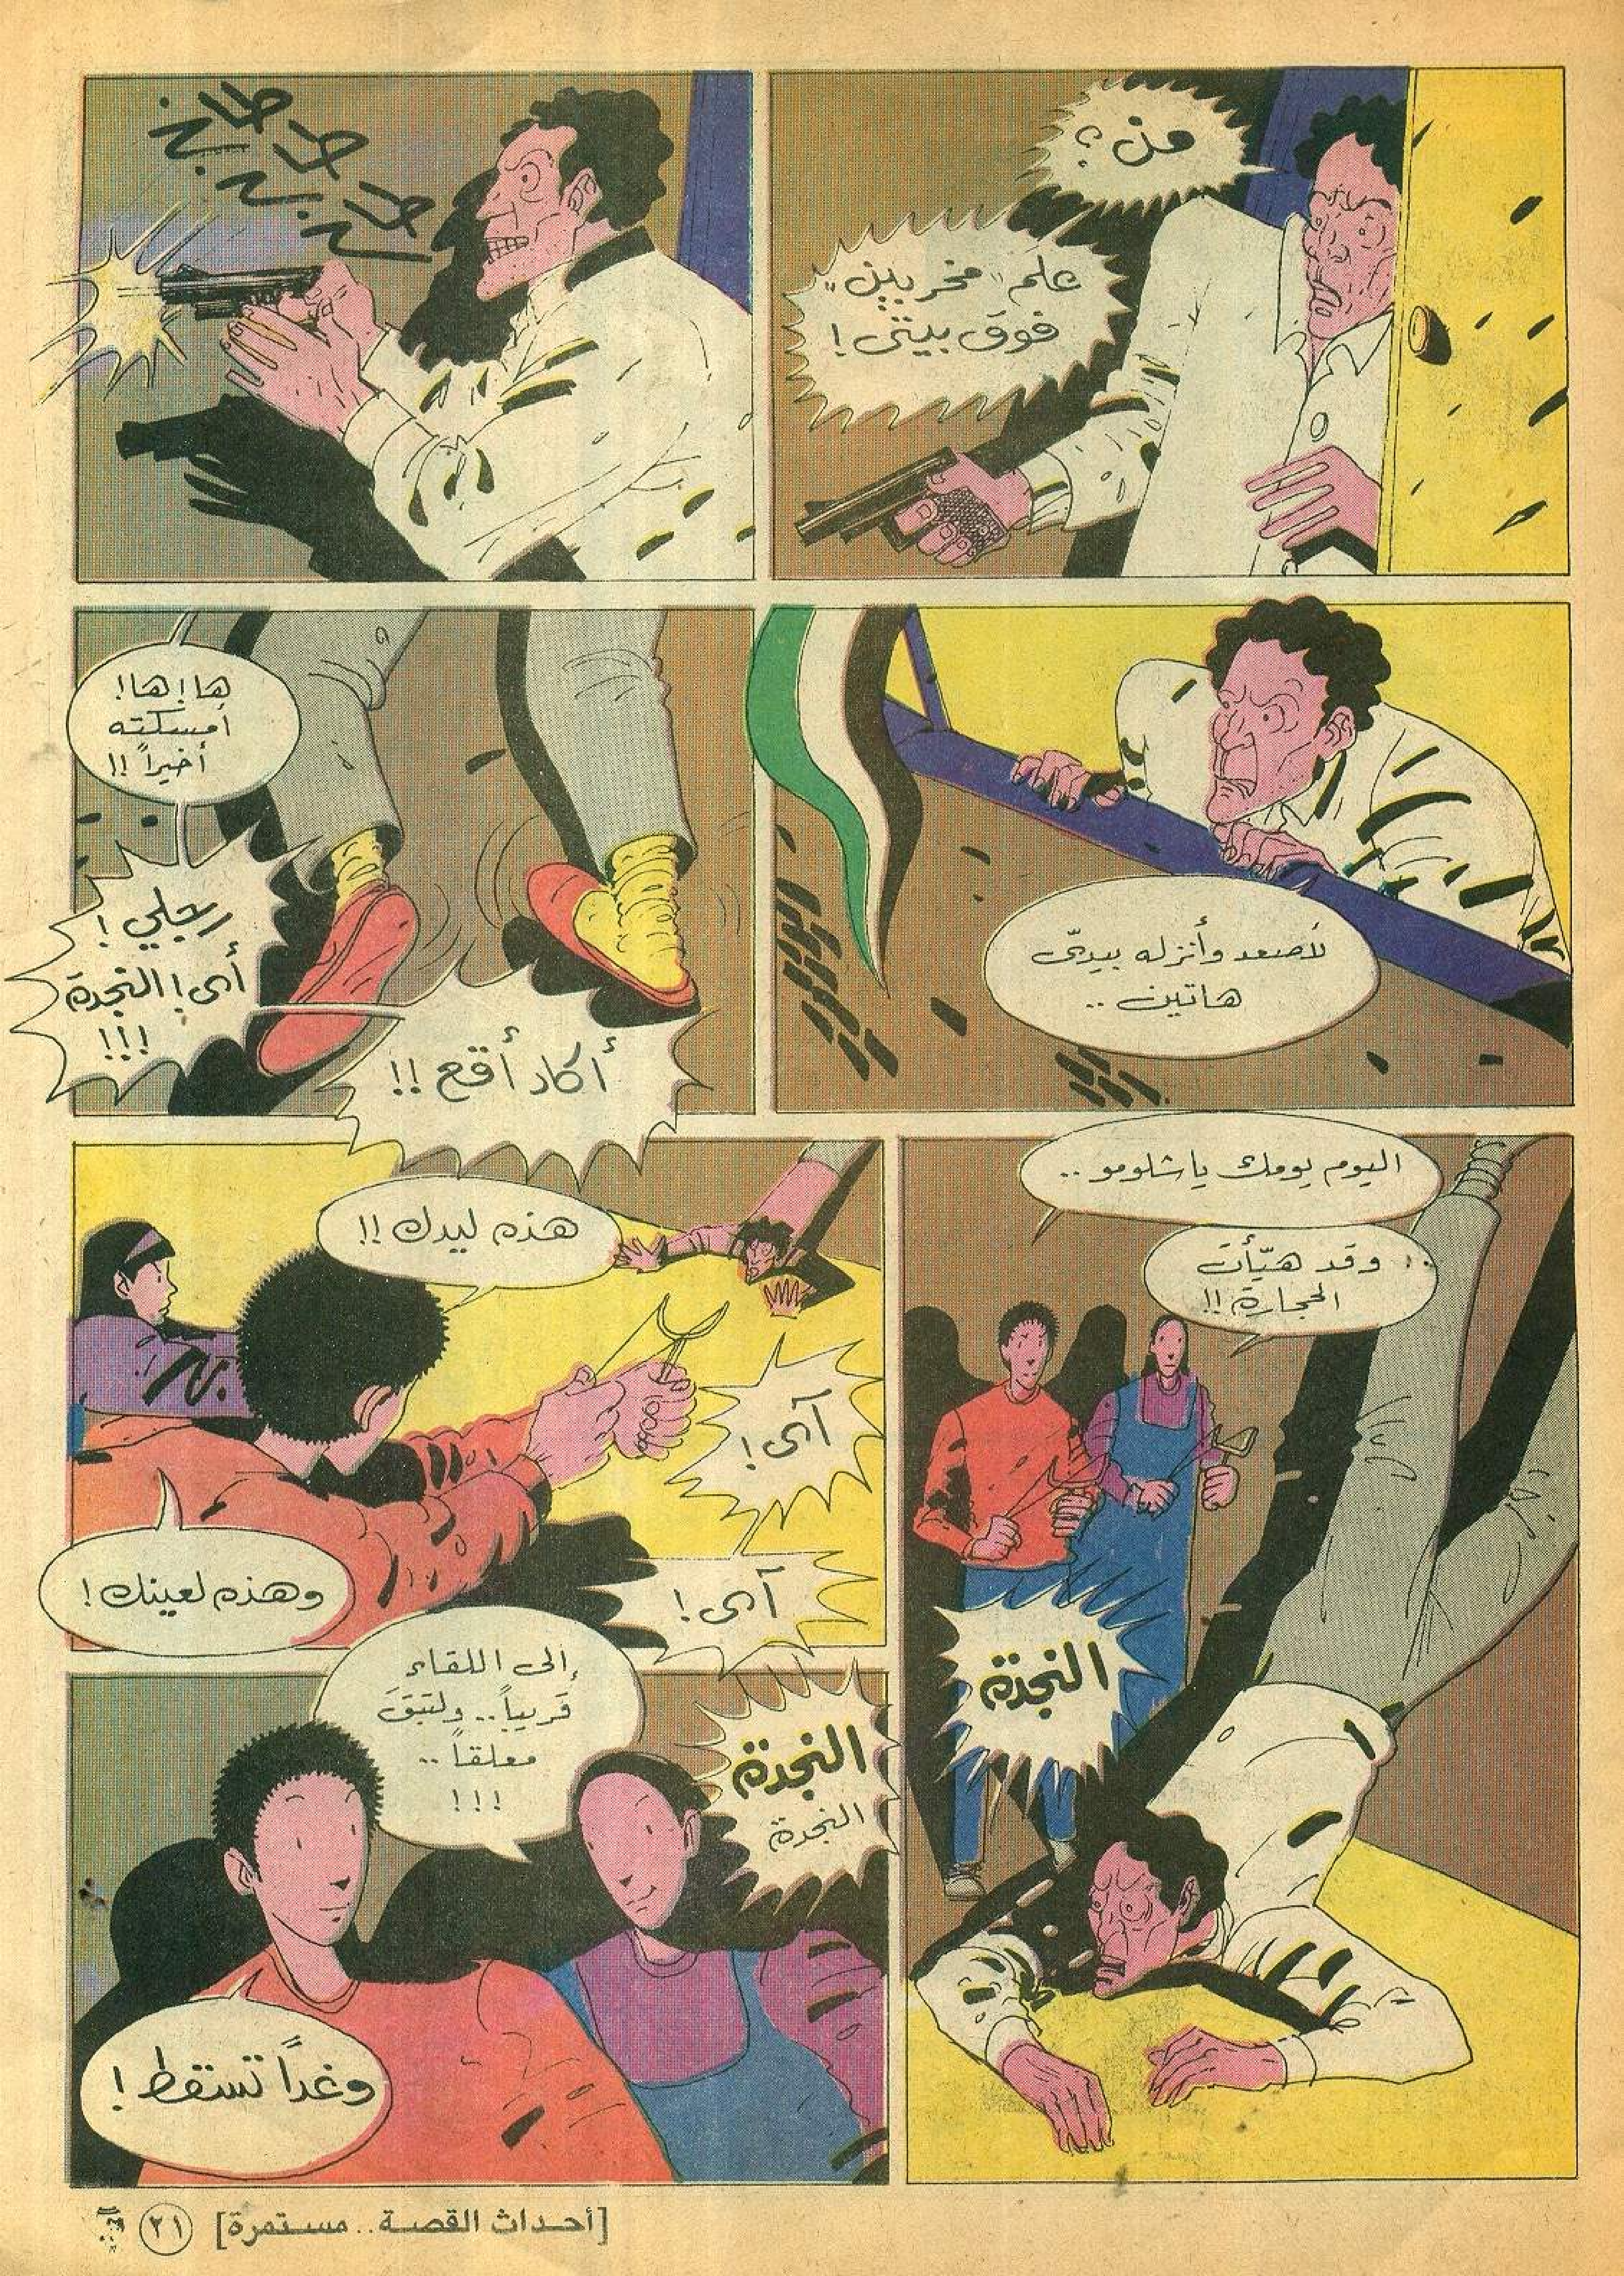 من؟
علم "مخربين"
فوق بيتي!
طاخ
طاخ
طاخ
لأصعد وأنزله بيديّ
هاتين ..
ها! ها!
أمسكته
أخيراً !!
رجلي!
آي! النجدة
!!!
أكاد أقع !!
اليوم يومك يا شلومو ..
.. وقد هيّأت
الحجارة !!
النجدة
هذه ليدك !!
آي!
وهذه لعينك!
آي!
إلى اللقاء
قريباً .. ولتبقَ
معلقاً ..
!!!
النجدة
النجدة
وغداً تسقط!
[أحداث القصة .. مستمرة] ٢١